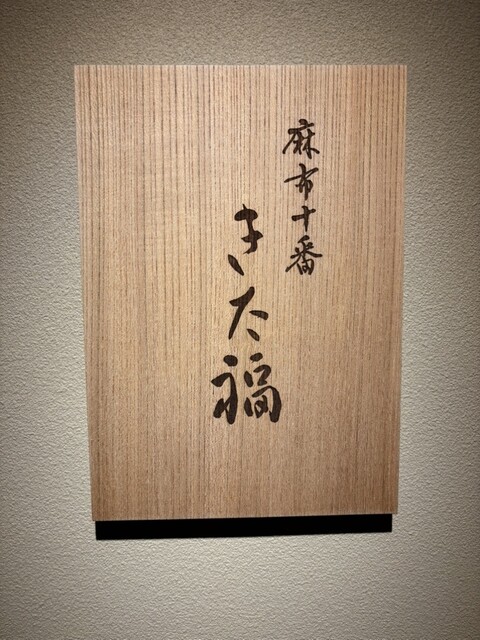 麻布十番
きた福